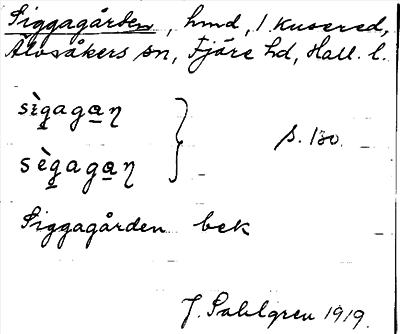 Siggagården, hmd, 1 Kusered,
Älvsåkers sn, Fjäre hd, Hall. l.
sìgagaη
sègagaη
s. 130.
Siggagården bek
J. Sahlgren 1919.